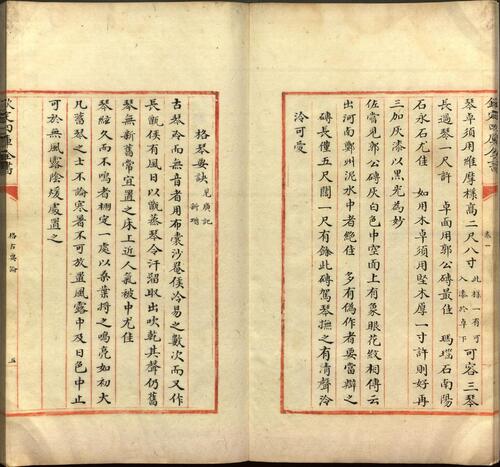 欽定四庫全書
卷一
琴卓須用維摩樣高二尺八寸此樣一有可入漆於卓下可容三琴
長過琴一尺許　卓面用郭公磚最佳　瑪瑙石南陽
石永石尤佳　如用木卓須用堅木厚一寸許則好再
三加灰漆以黑光為妙
佐嘗見郭公磚灰白色中空面上有象眼花紋相傳云
出河南鄭州泥水中者絕佳　多有偽作者要當辯之
磚長僅五尺闊一尺有餘此磚駕琴撫之有清聲泠
泠可愛
格琴要訣見廣記新增
古琴冷而無音者用布囊沙甖候冷易之數次而又作
長甑候有風日以甑蒸琴令汗溜取出吹乾其聲仍舊
琴無新舊常宜置之床上近人氣被中尤佳
琴絃久而不鳴者繃定一處以桑葉捋之鳴亮如初大
凡舊琴之士不論寒暑不可放置風露中及日色中止
可於無風露陰煖處置之
欽定四庫全書
格古要論
五